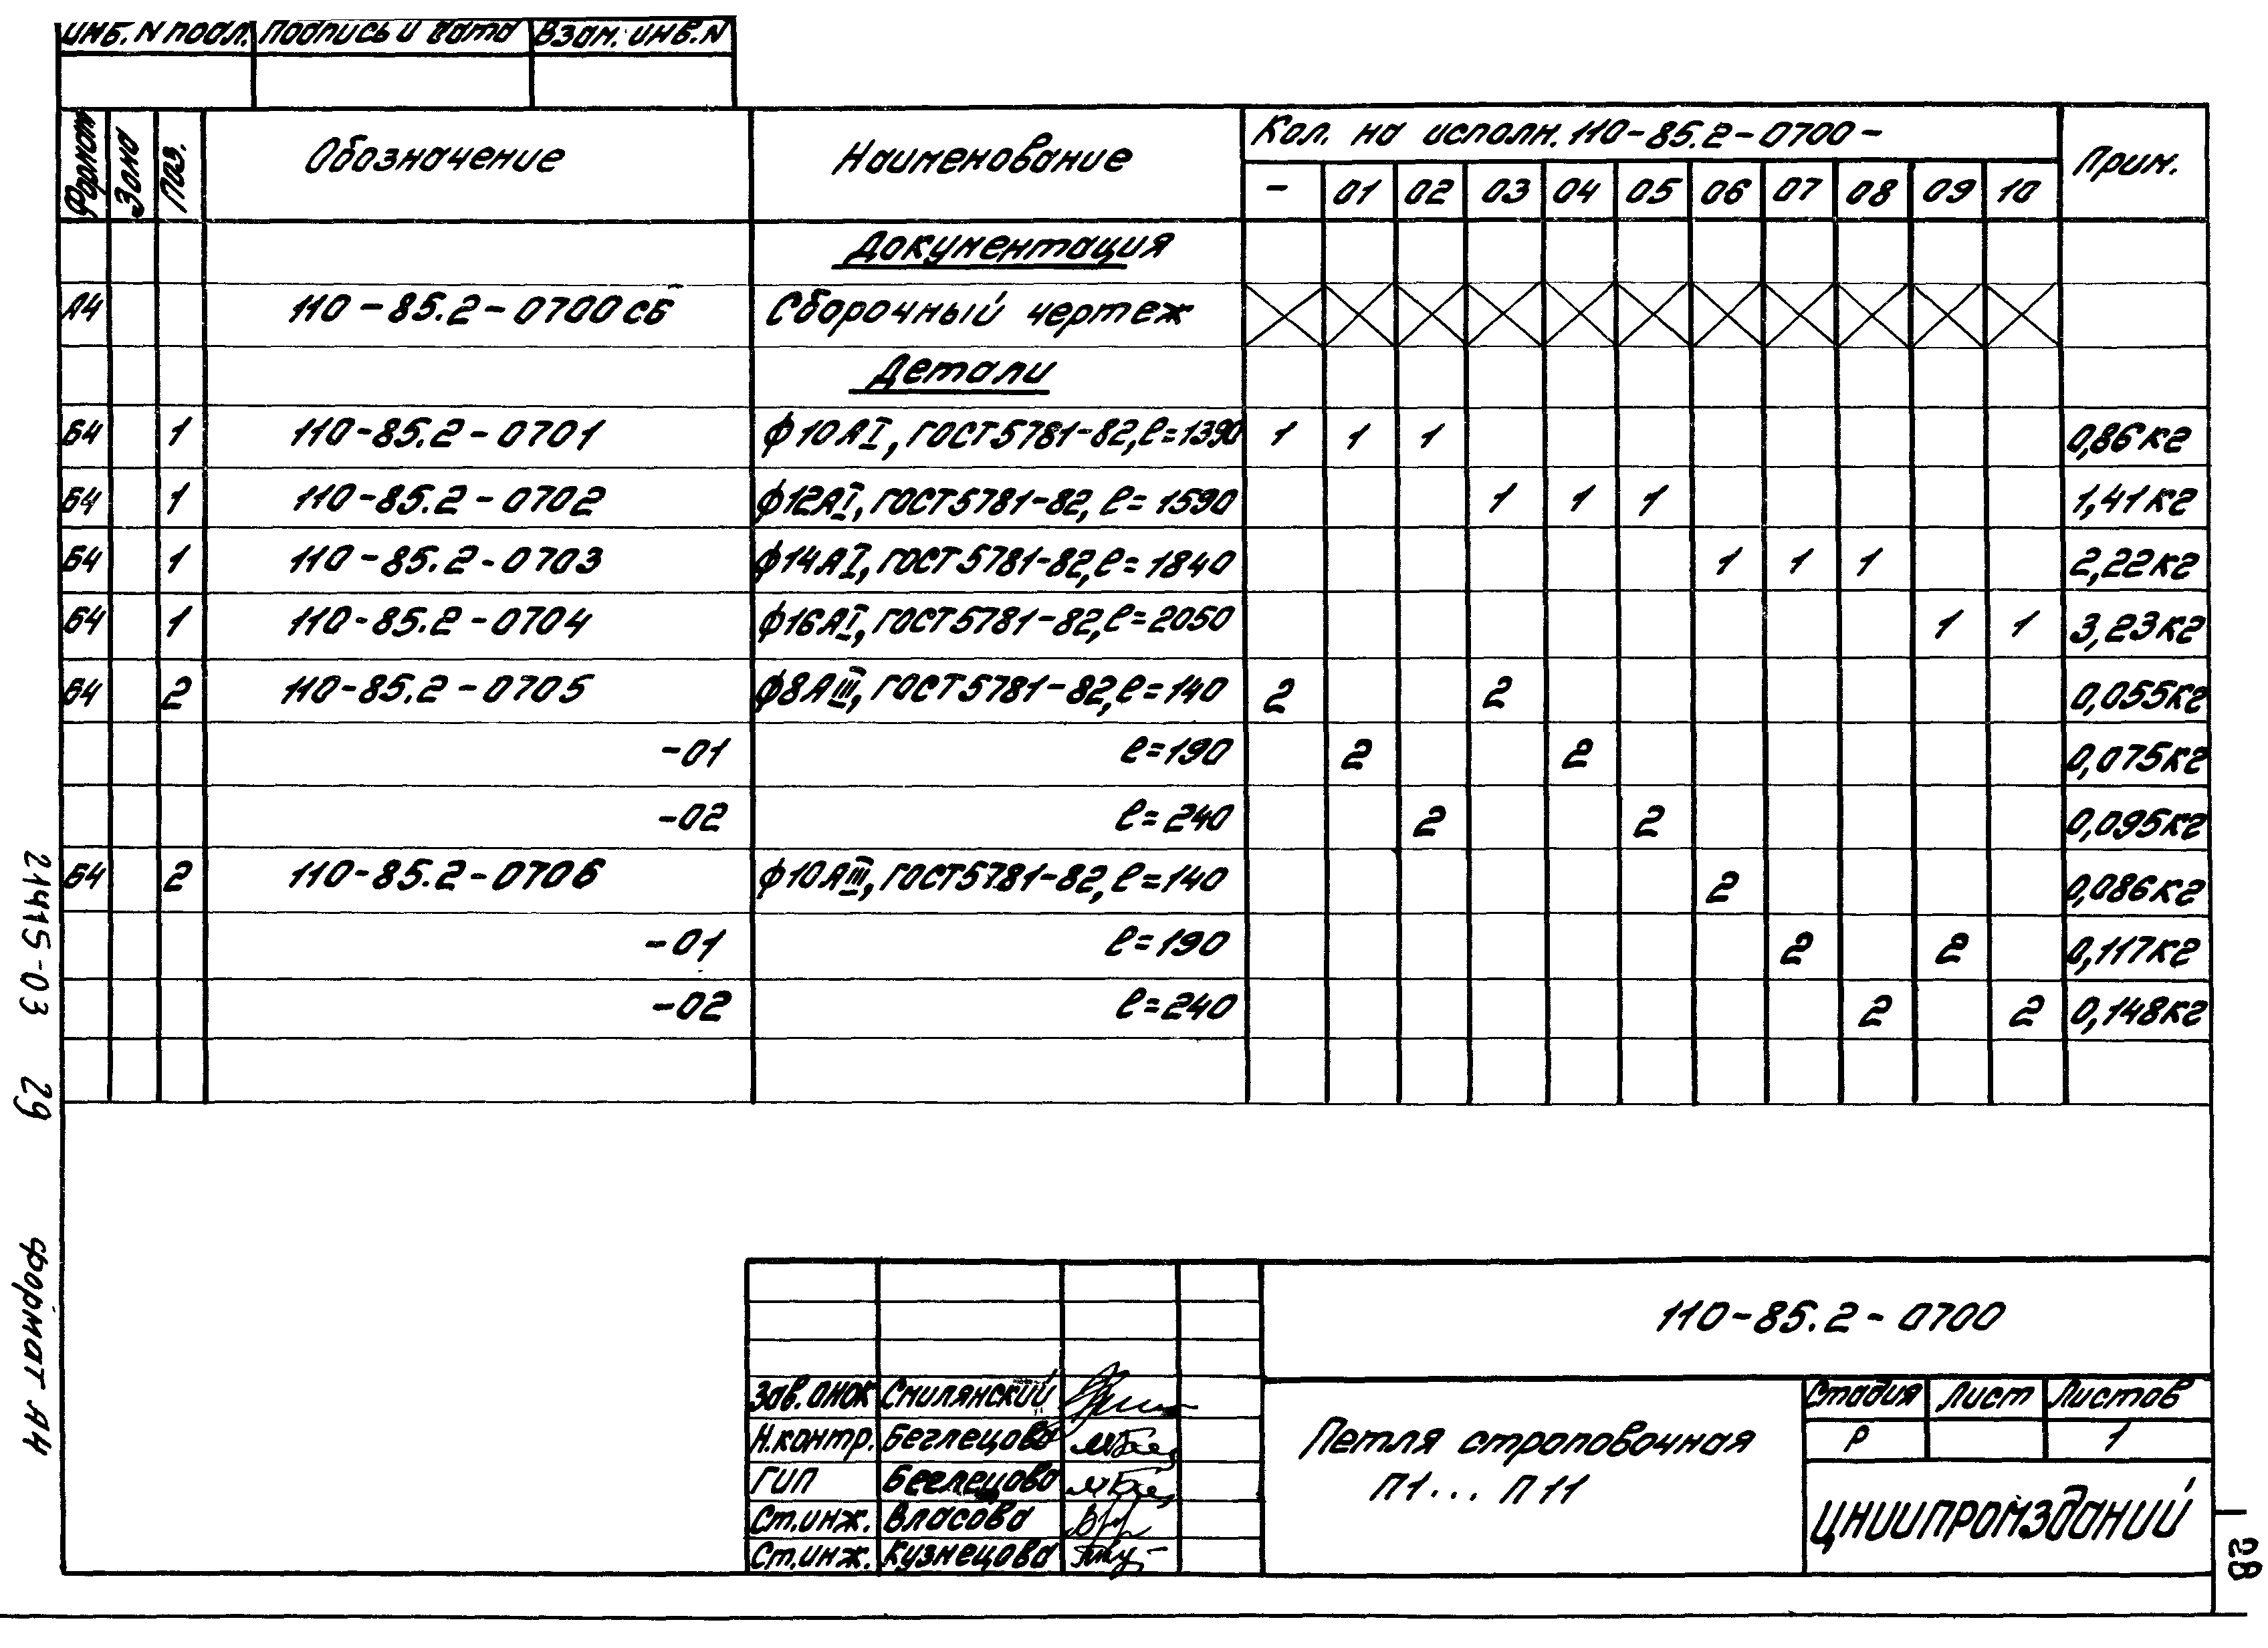 Инв. N подл. Подпись и дата Взам. инв. N
Формат Зона Поз. Обозначение Наименование Кол. на исполн. 110-85.2-0700- Прим.
- 01 02 03 04 05 06 07 08 09 10
Документация
А4 110-85.2-0700 СБ Сборочный чертеж
Детали
Б4 1 110-85.2-0701 ф10АI, ГОСТ 5781-82, ℓ=1390 1 1 1 0,86 кг
Б4 1 110-85.2-0702 ф12АI, ГОСТ 5781-82, ℓ=1590 1 1 1 1,41 кг
Б4 1 110-85.2-0703 ф14АI, ГОСТ 5781-82, ℓ=1840 1 1 1 2,22 кг
Б4 1 110-85.2-0704 ф16АI, ГОСТ 5781-82, ℓ=2050 1 1 3,23 кг
Б4 2 110-85.2-0705 ф8АIII, ГОСТ 5781-82, ℓ=140 2 2 0,055 кг
-01 ℓ=190 2 2 0,075 кг
-02 ℓ=240 2 2 0,095 кг
Б4 2 110-85.2-0706 ф10АIII, ГОСТ 5781-82, ℓ=140 2 0,086 кг
-01 ℓ=190 2 2 0,117 кг
-02 ℓ=240 2 2 0,148 кг
110-85.2-0700
Зав. ОНОК Смилянский
Н. контр. Беглецова
ГИП Беглецова
Ст. инж. Власова
Ст. инж. Кузнецова
Петля строповочная
П1... П11
Стадия Лист Листов
Р 1
ЦНИИПРОМЗДАНИЙ
21415-03 29
Формат А4
28